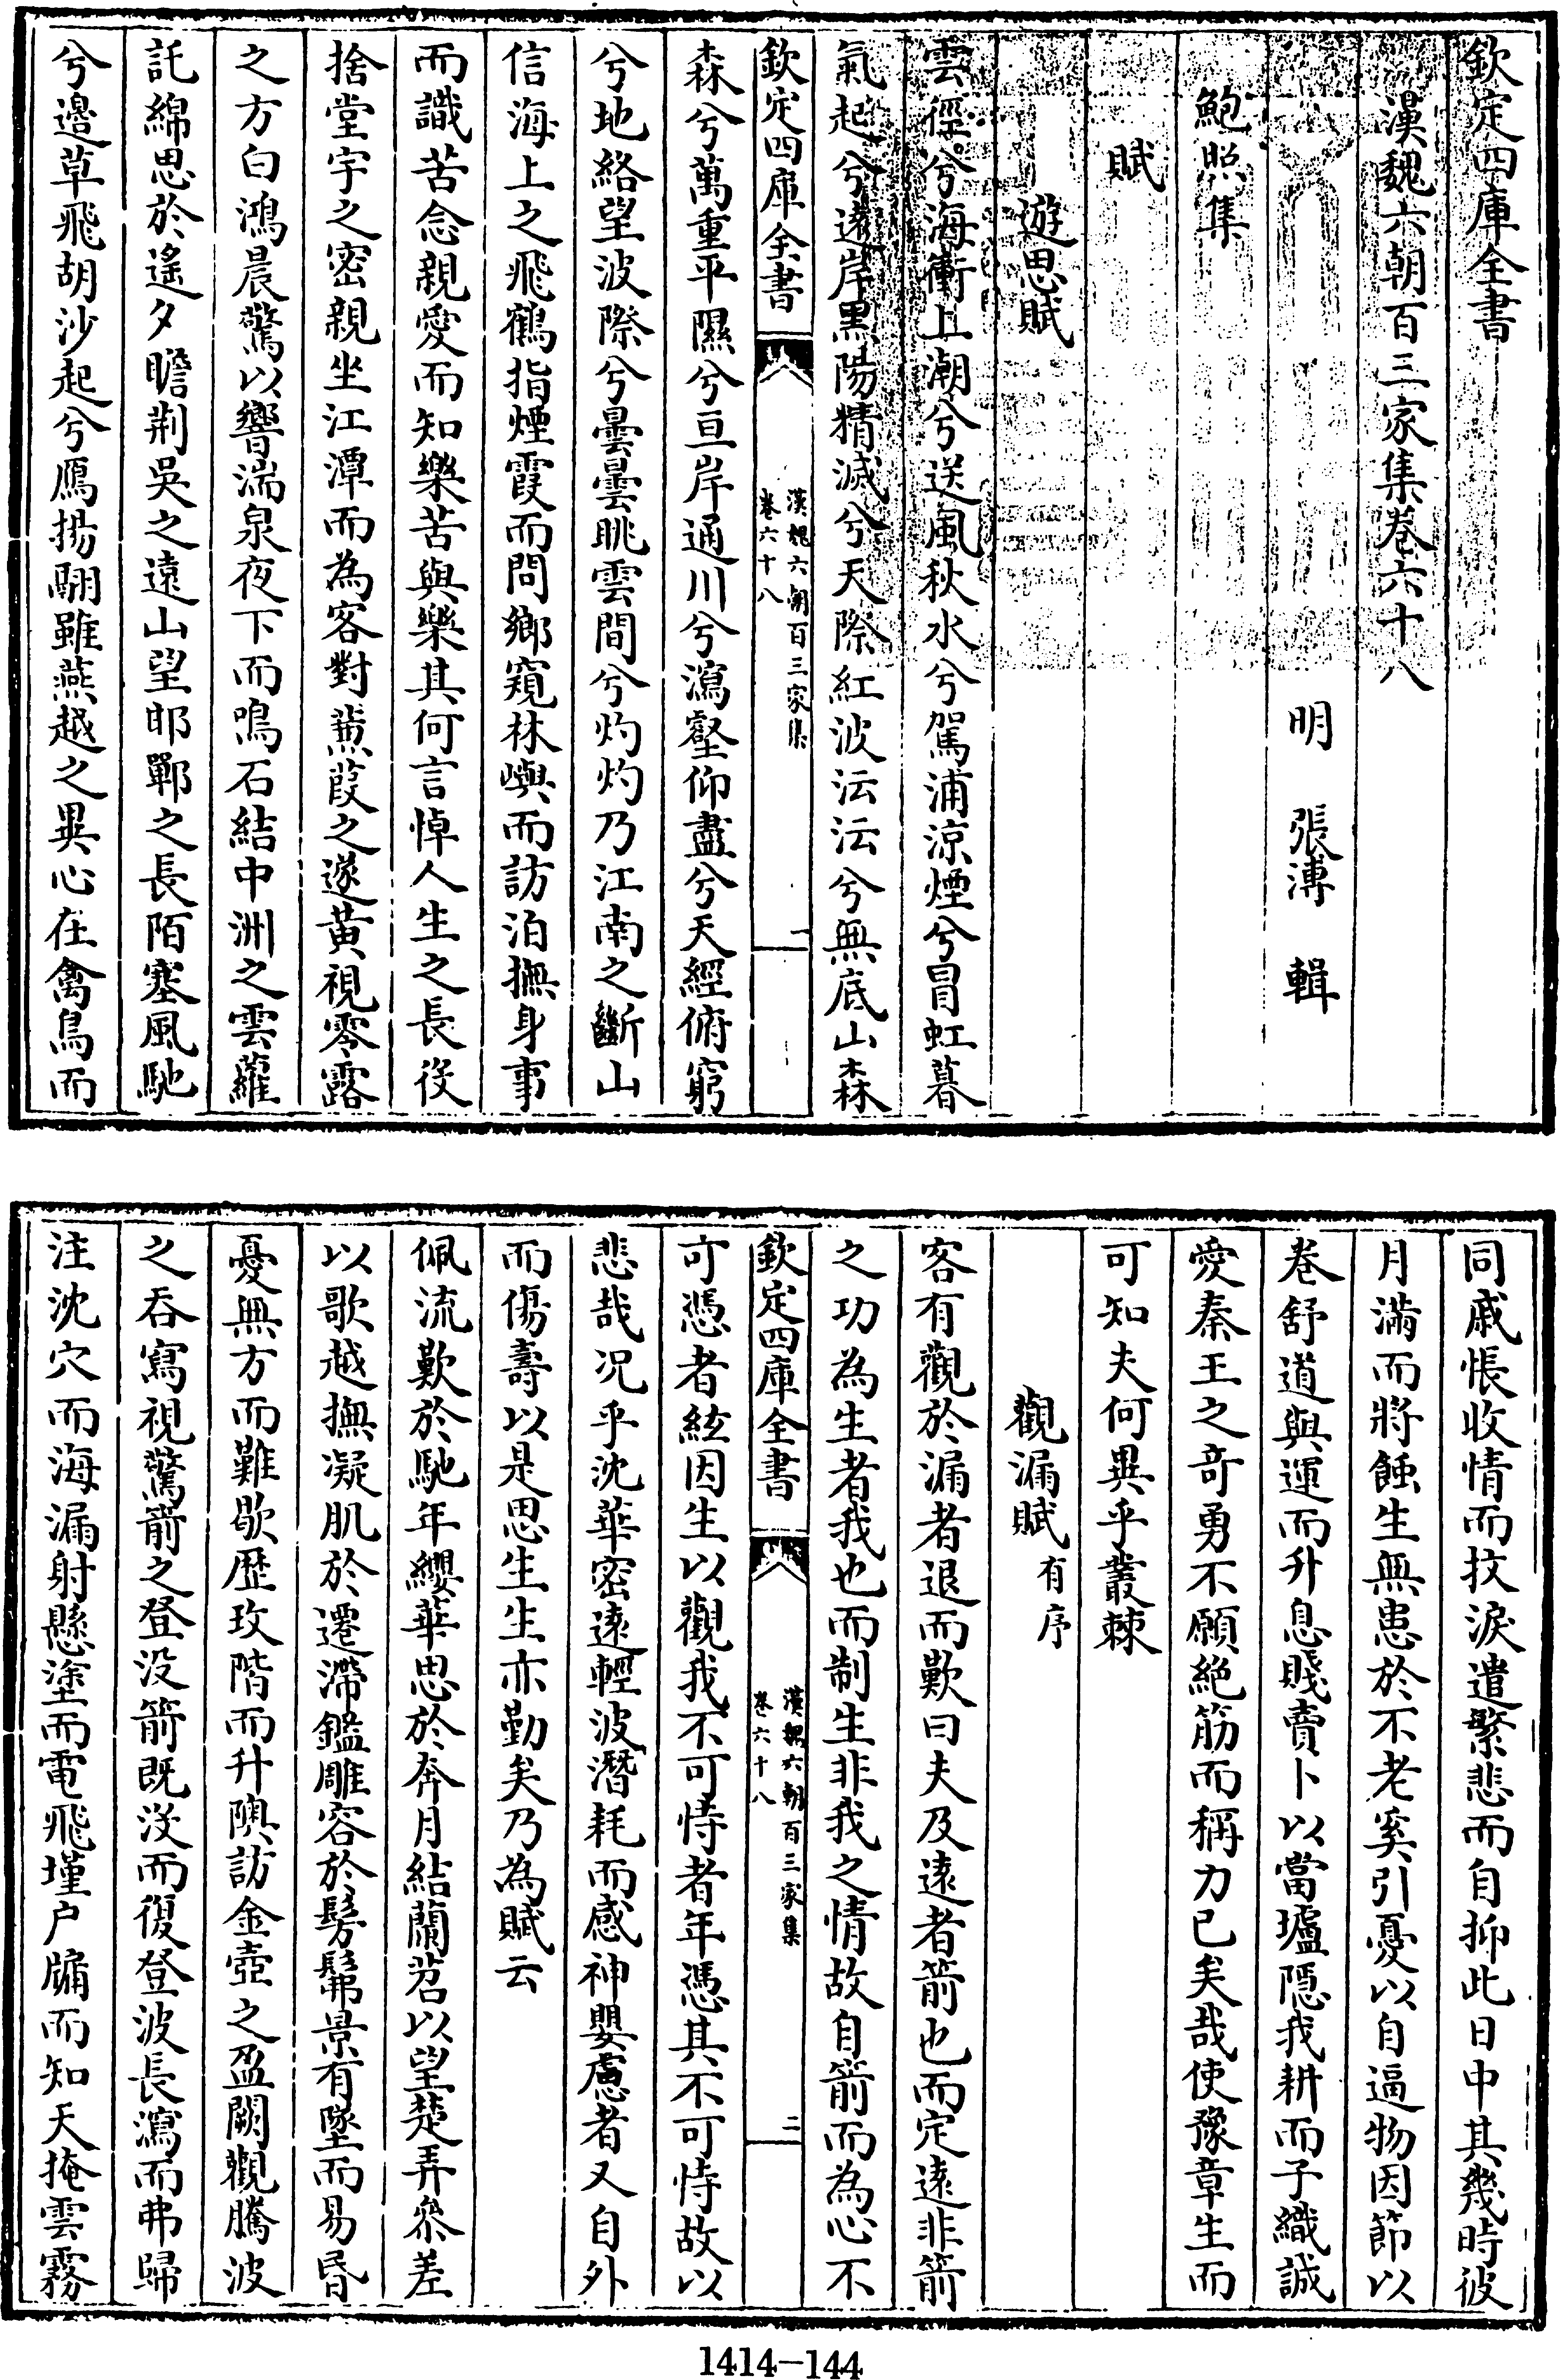 欽定四庫全書
漢魏六朝百三家集卷六十八
明 張溥 輯
鮑照集
賦
遊思賦
雲徑兮海衝上潮兮送風秋水兮駕浦涼煙兮冒虹暮
氣起兮遠岸黒陽精滅兮天際紅波沄沄兮無底山森
欽定四庫全書
漢魏六朝百三家集
卷六十八
一
森兮萬重平隰兮亘岸通川兮瀉壑仰盡兮天經俯窮
兮地絡望波際兮曇曇眺雲間兮灼灼乃江南之斷山
信海上之飛鶴指煙霞而問鄉窺林嶼而訪泊撫身事
而識苦念親愛而知樂苦與樂其何言悼人生之長役
捨堂宇之密親坐江潭而為客對蒹葭之遂黄視零露
之方白鴻晨驚以響湍泉夜下而鳴石結中洲之雲蘿
託綿思於遥夕瞻荆吳之遠山望邯鄲之長陌塞風馳
兮邉草飛胡沙起兮鴈揚翮雖燕越之異心在禽鳥而
同戚悵收情而抆淚遣繁悲而自抑此日中其幾時彼
月滿而將蝕生無患於不老奚引憂以自逼物因節以
卷舒道與運而升息賤賣卜以當壚隱我耕而子織誠
愛秦王之竒勇不願絶筋而稱力已矣哉使豫章生而
可知夫何異乎叢棘
觀漏賦有序
客有觀於漏者退而歎曰夫及遠者箭也而定遠非箭
之功為生者我也而制生非我之情故自箭而為心不
欽定四庫全書
漢魏六朝百三家集
卷六十八
二
可憑者絃因生以觀我不可恃者年憑其不可恃故以
悲哉況乎沈華密遠輕波潛耗而感神嬰慮者又自外
而傷壽以是思生生亦勤矣乃為賦云
佩流歎於馳年纓華思於奔月結蘭苕以望楚弄參差
以歌越撫凝肌於遷滯鑑雕容於髣髴景有墜而易昏
憂無方而難歇歴玫階而升隩訪金壺之盈闕觀騰波
之吞寫視驚箭之登没箭既没而復登波長瀉而弗歸
注沈穴而海漏射懸塗而電飛墐户牖而知天掩雲霧
1414—144